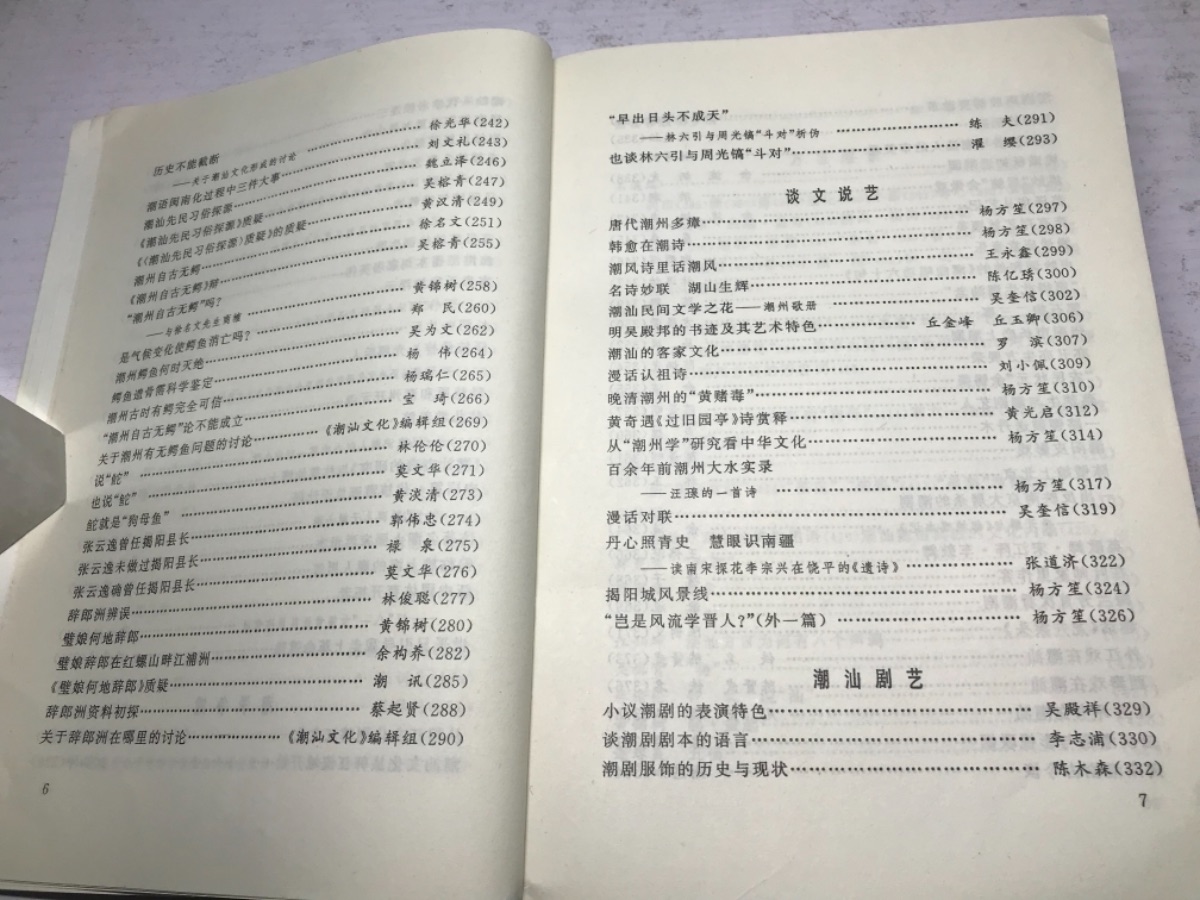 历史不能截断
——关于潮汕文化形成的讨论 ……………… 徐光华(242)
潮语闽南化过程中三件大事……………… 刘文礼(243)
潮汕先民习俗探源……………… 魏立泽(246)
《潮汕先民习俗探源》质疑……………… 吴榕青(247)
《〈潮汕先民习俗探源〉质疑》的质疑……………… 黄汉清(249)
潮州自古无鳄……………… 徐名文(251)
《潮州自古无鳄》辩……………… 吴榕青(255)
“潮州自古无鳄”吗?
——与徐名文先生商榷 ……………… 黄锦树(258)
是气候变化使鳄鱼消亡吗?……………… 郑 民(260)
潮州鳄鱼何时灭绝……………… 吴为文(262)
鳄鱼遗骨需科学鉴定……………… 杨 伟(264)
潮州古时有鳄完全可信……………… 杨瑞仁(265)
“潮州自古无鳄”论不能成立……………… 宝 琦(266)
关于潮州有无鳄鱼问题的讨论…………《潮汕文化》编辑组(269)
说“鮀”……………… 林伦伦(270)
也说“鮀”……………… 莫文华(271)
鮀就是“狗母鱼”……………… 黄淡清(273)
张云逸曾任揭阳县长……………… 郭伟忠(274)
张云逸未做过揭阳县长……………… 禄 泉(275)
张云逸确曾任揭阳县长……………… 莫文华(276)
辞郎洲辨误……………… 林俊聪(277)
璧娘何地辞郎……………… 黄锦树(280)
璧娘辞郎在红螺山畔江浦洲……………… 余构养(282)
《璧娘何地辞郎》质疑……………… 潮 讯(285)
辞郎洲资料初探……………… 蔡起贤(288)
关于辞郎洲在哪里的讨论……………《潮汕文化》编辑组(290)
6
“早出日头不成天”
——林六引与周光镐“斗对”析伪 ……………… 练 夫(291)
也谈林六引与周光镐“斗对”……………… 濯 缨(293)
谈文说艺
唐代潮州多瘴……………… 杨方笙(297)
韩愈在潮诗……………… 杨方笙(298)
潮风诗里话潮风……………… 王永鑫(299)
名诗妙联 湖山生辉……………… 陈亿琇(300)
潮汕民间文学之花——潮州歌册……………… 吴奎信(302)
明吴殿邦的书迹及其艺术特色……………… 丘金峰 丘玉卿(306)
潮汕的客家文化……………… 罗 滨(307)
漫话认祖诗……………… 刘小佩(309)
晚清潮州的“黄赌毒”……………… 杨方笙(310)
黄奇遇《过旧园亭》诗赏释……………… 黄光启(312)
从“潮州学”研究看中华文化……………… 杨方笙(314)
百余年前潮州大水实录
——汪瑔的一首诗 ……………… 杨方笙(317)
漫话对联……………… 吴奎信(319)
丹心照青史 慧眼识南疆
——读南宋探花李宗兴在饶平的《遗诗》……………… 张道济(322)
揭阳城风景线……………… 杨方笙(324)
“岂是风流学晋人?”(外一篇)……………… 杨方笙(326)
潮汕剧艺
小议潮剧的表演特色……………… 吴殿祥(329)
谈潮剧剧本的语言……………… 李志浦(330)
潮剧服饰的历史与现状……………… 陈木森(332)
7